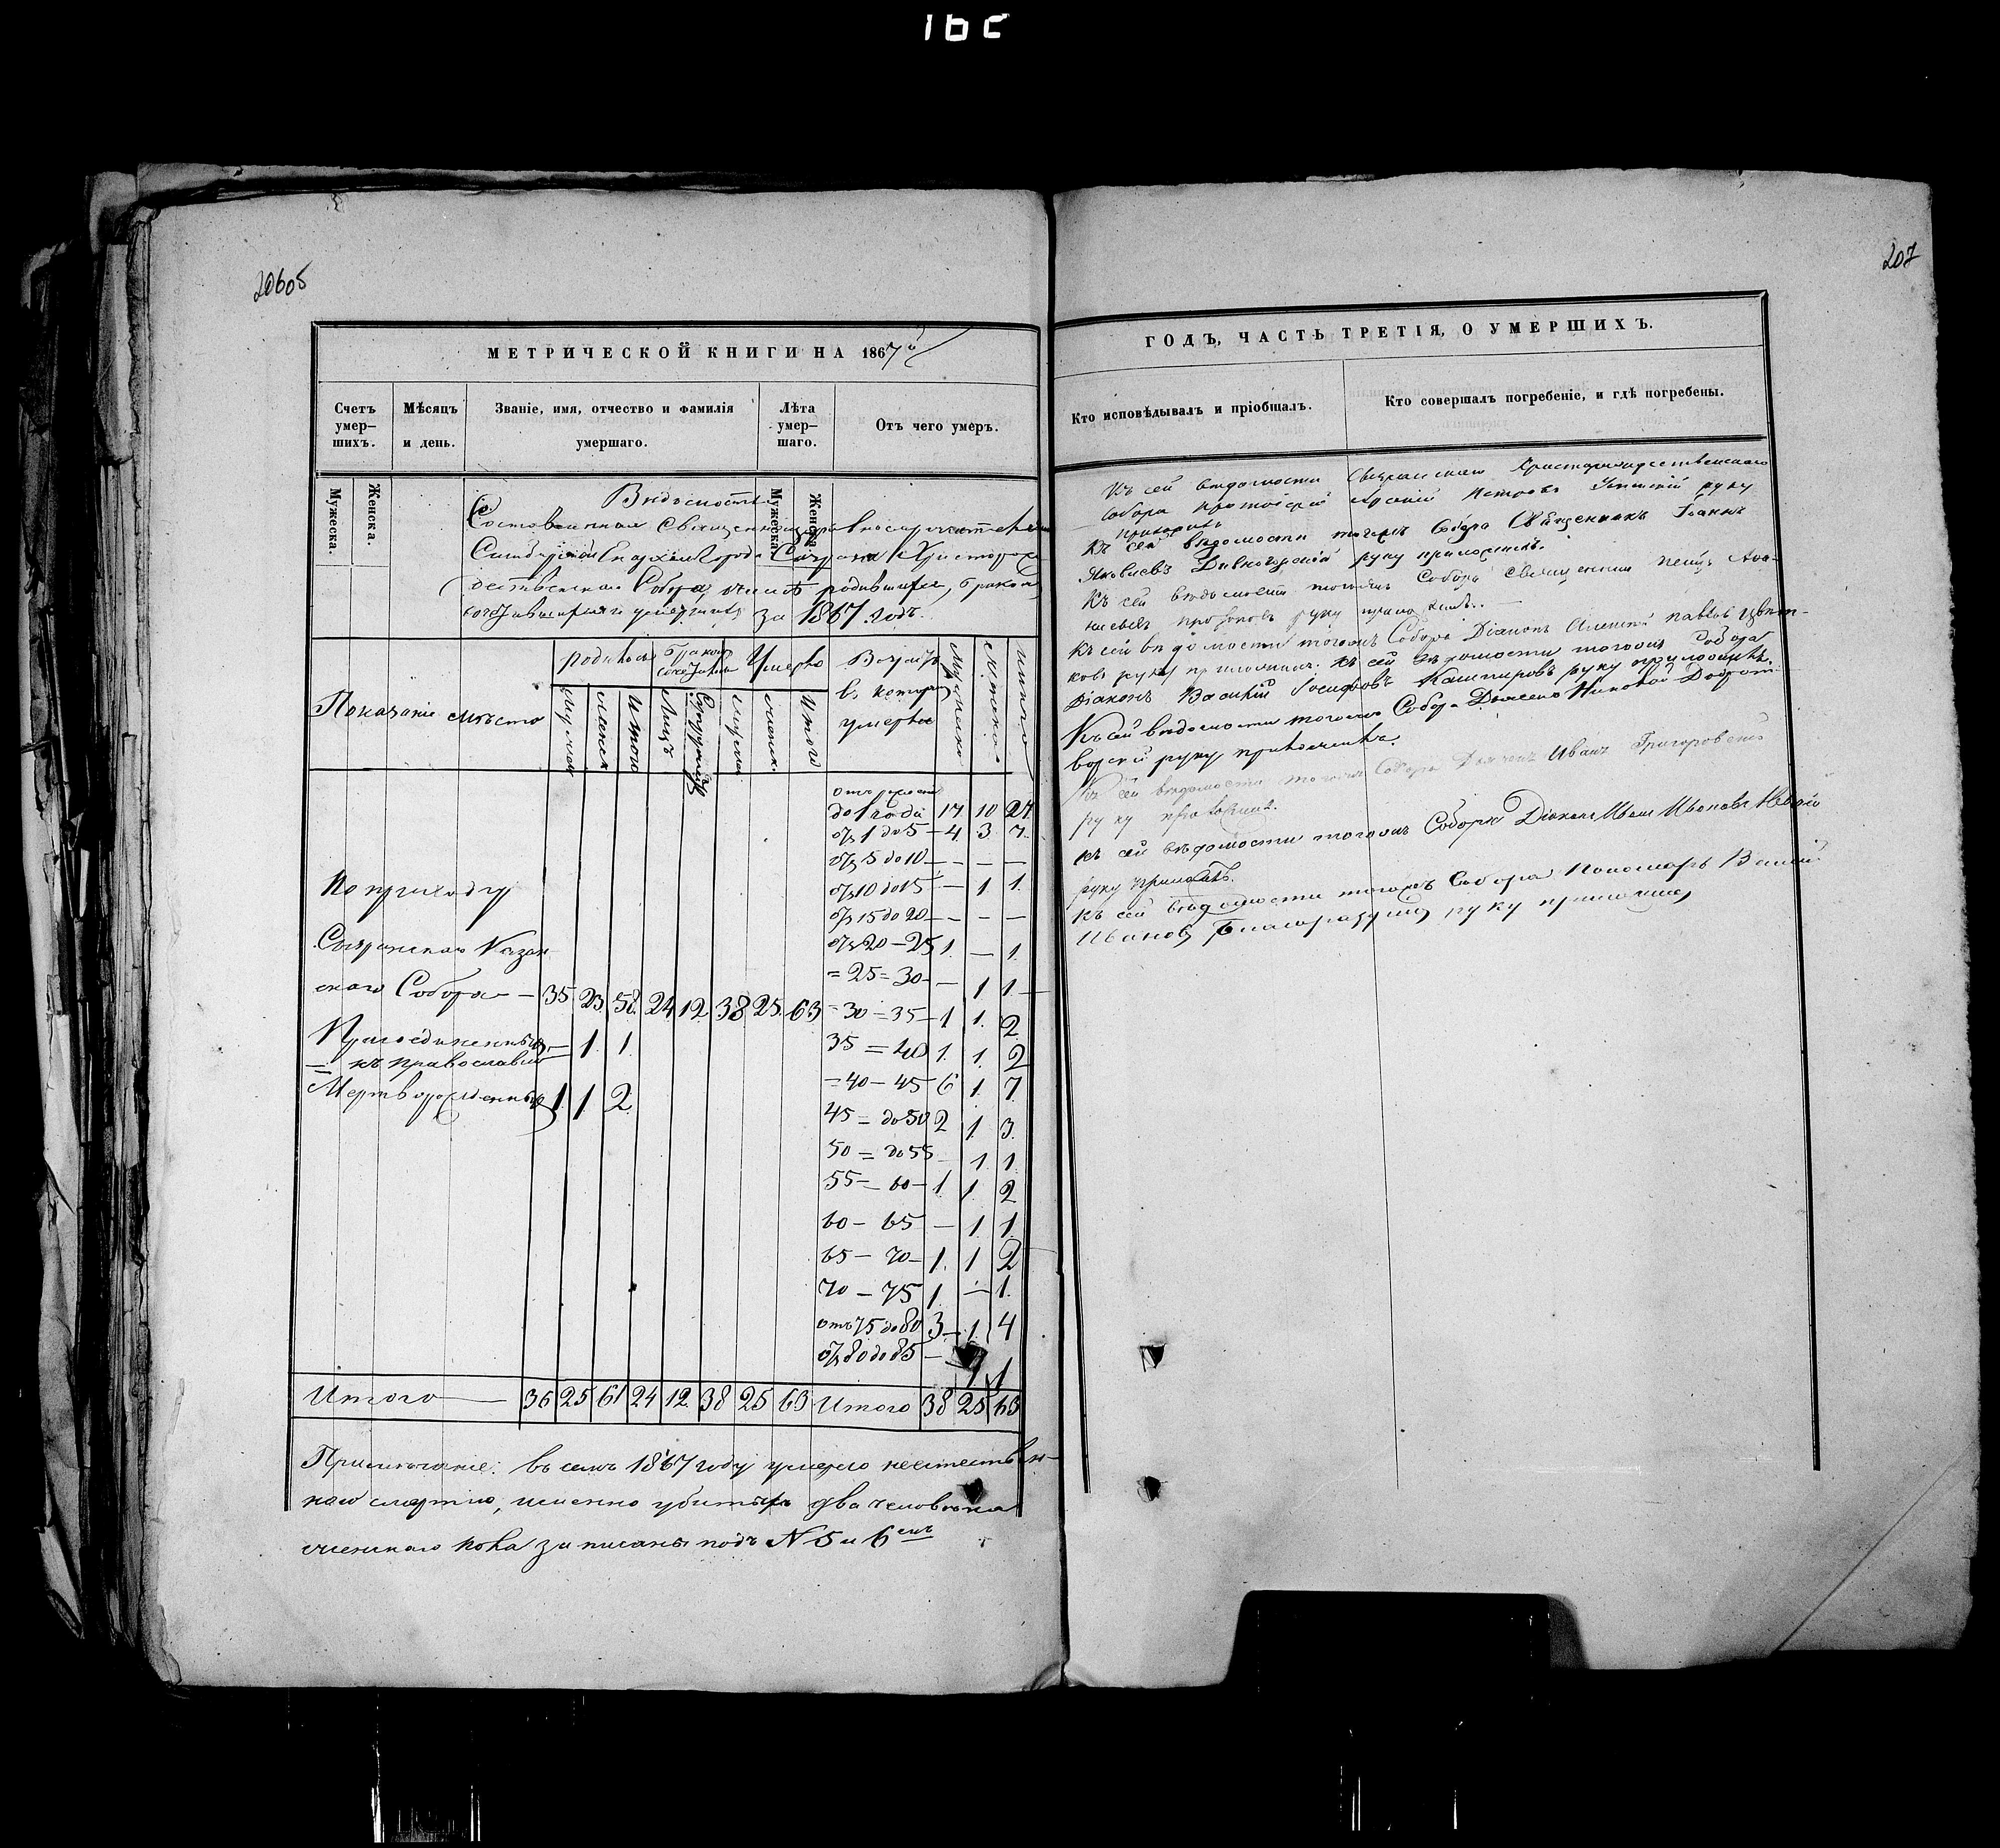 16c
20605
МЕТРИЧЕСКОЙ КНИГИ НА 1867й
Счетъ умер-шихъ.
Мѣсяцъ и день.
Званіе, имя, отчество и фамилія умершаго.
Лѣта умер-шаго.
Отъ чего умеръ.
Мужеска.
Женска.
Мужеска.
Женска.
Вѣдомость
Составленная Священноцерковнослужителями
Симбирской Епархіи Города Сызрана Христорож
дественскаго Собора, о числѣ родившихся, бракомъ
сочетавшихся и умершихъ за 1867 годъ.
Показаніе мѣстъ
Родилось
Бракомъ сочетались
Умерло
Возрастъ въ которомъ умерло
Мужеска
Женска
Итого
Мужеска
Женска
Итого
Лицъ
Супружествъ
Мужска
Женска
Итого
отъ рожденія
до 1 года 17 10 27
отъ 1 до 5 — 4 3 7.
отъ 5 до 10 — — — —
По приходу отъ 10 до 15 — 1 1.
отъ 15 до 20 — — — —
Сызранскаго Казан отъ 20 — 25 1. — 1.
= 25 = 30 — — 1 1
скаго Собора — 35 23 58. 24 12. 38 25. 63 = 30 = 35 — 1 1. 2
Присоединенныхъ — 1. 1. 35 = 40 1. 1. 2
къ православію
= 40 — 45 6 1. 7
Мертворожденныхъ 1. 1 2. 45 = до 50 2 1. 3.
50 = до 55 1. 1.
55 — 60 — 1. 1. 2
60 — 65 — 1 1.
65 — 70 — 1. 1 2
70 — 75 1. — 1.
отъ 75 до 80 3 — 1. 4
отъ 80 до 85 — 1 1
Итого 36 25 61 24 12. 38 25 63 Итого 38 25 63
Примѣчаніе: въ семъ 1867 году умерло неестествен-
ною смертію, именно убитыхъ два человѣка
женскаго пола записаны подъ N 5 и 6емъ
207
ГОДЪ, ЧАСТЬ ТРЕТІЯ, О УМЕРШИХЪ.
Кто исповѣдывалъ и пріобщалъ.
Кто совершалъ погребеніе, и гдѣ погребены.
Къ сей вѣдомости Сызранскаго Христорождественскаго
Собора Протоіерей Арсеній Петровъ руку
приложилъ
Къ сей вѣдомости тогожъ Собора Священникъ Іоаннъ
Яковлевъ Дивногорскій руку приложилъ.
Къ сей вѣдомости тогожъ Собора священникъ Петръ Афа-
насьевъ руку приложилъ. —
Къ сей вѣдомости тогожъ Собора Діаконъ Алексѣй Павловъ Цвѣт-
ковъ руку приложилъ. Къ сей вѣдомости тогожъ Собора
Діаконъ Василій Іосифовъ Кашпировъ руку приложилъ.
Къ сей вѣдомости тогожъ Собора Дьячекъ Николай
руку приложилъ.
Къ сей вѣдомости тогожъ Собора Дьячекъ Иванъ Григоровскій
руку приложилъ.
Къ сей вѣдомости тогожъ Собора Діаконъ Иванъ Ивановъ
руку приложилъ.
Къ сей вѣдомости тогожъ Собора Пономарь Василій
Ивановъ Благоразумовъ руку приложилъ